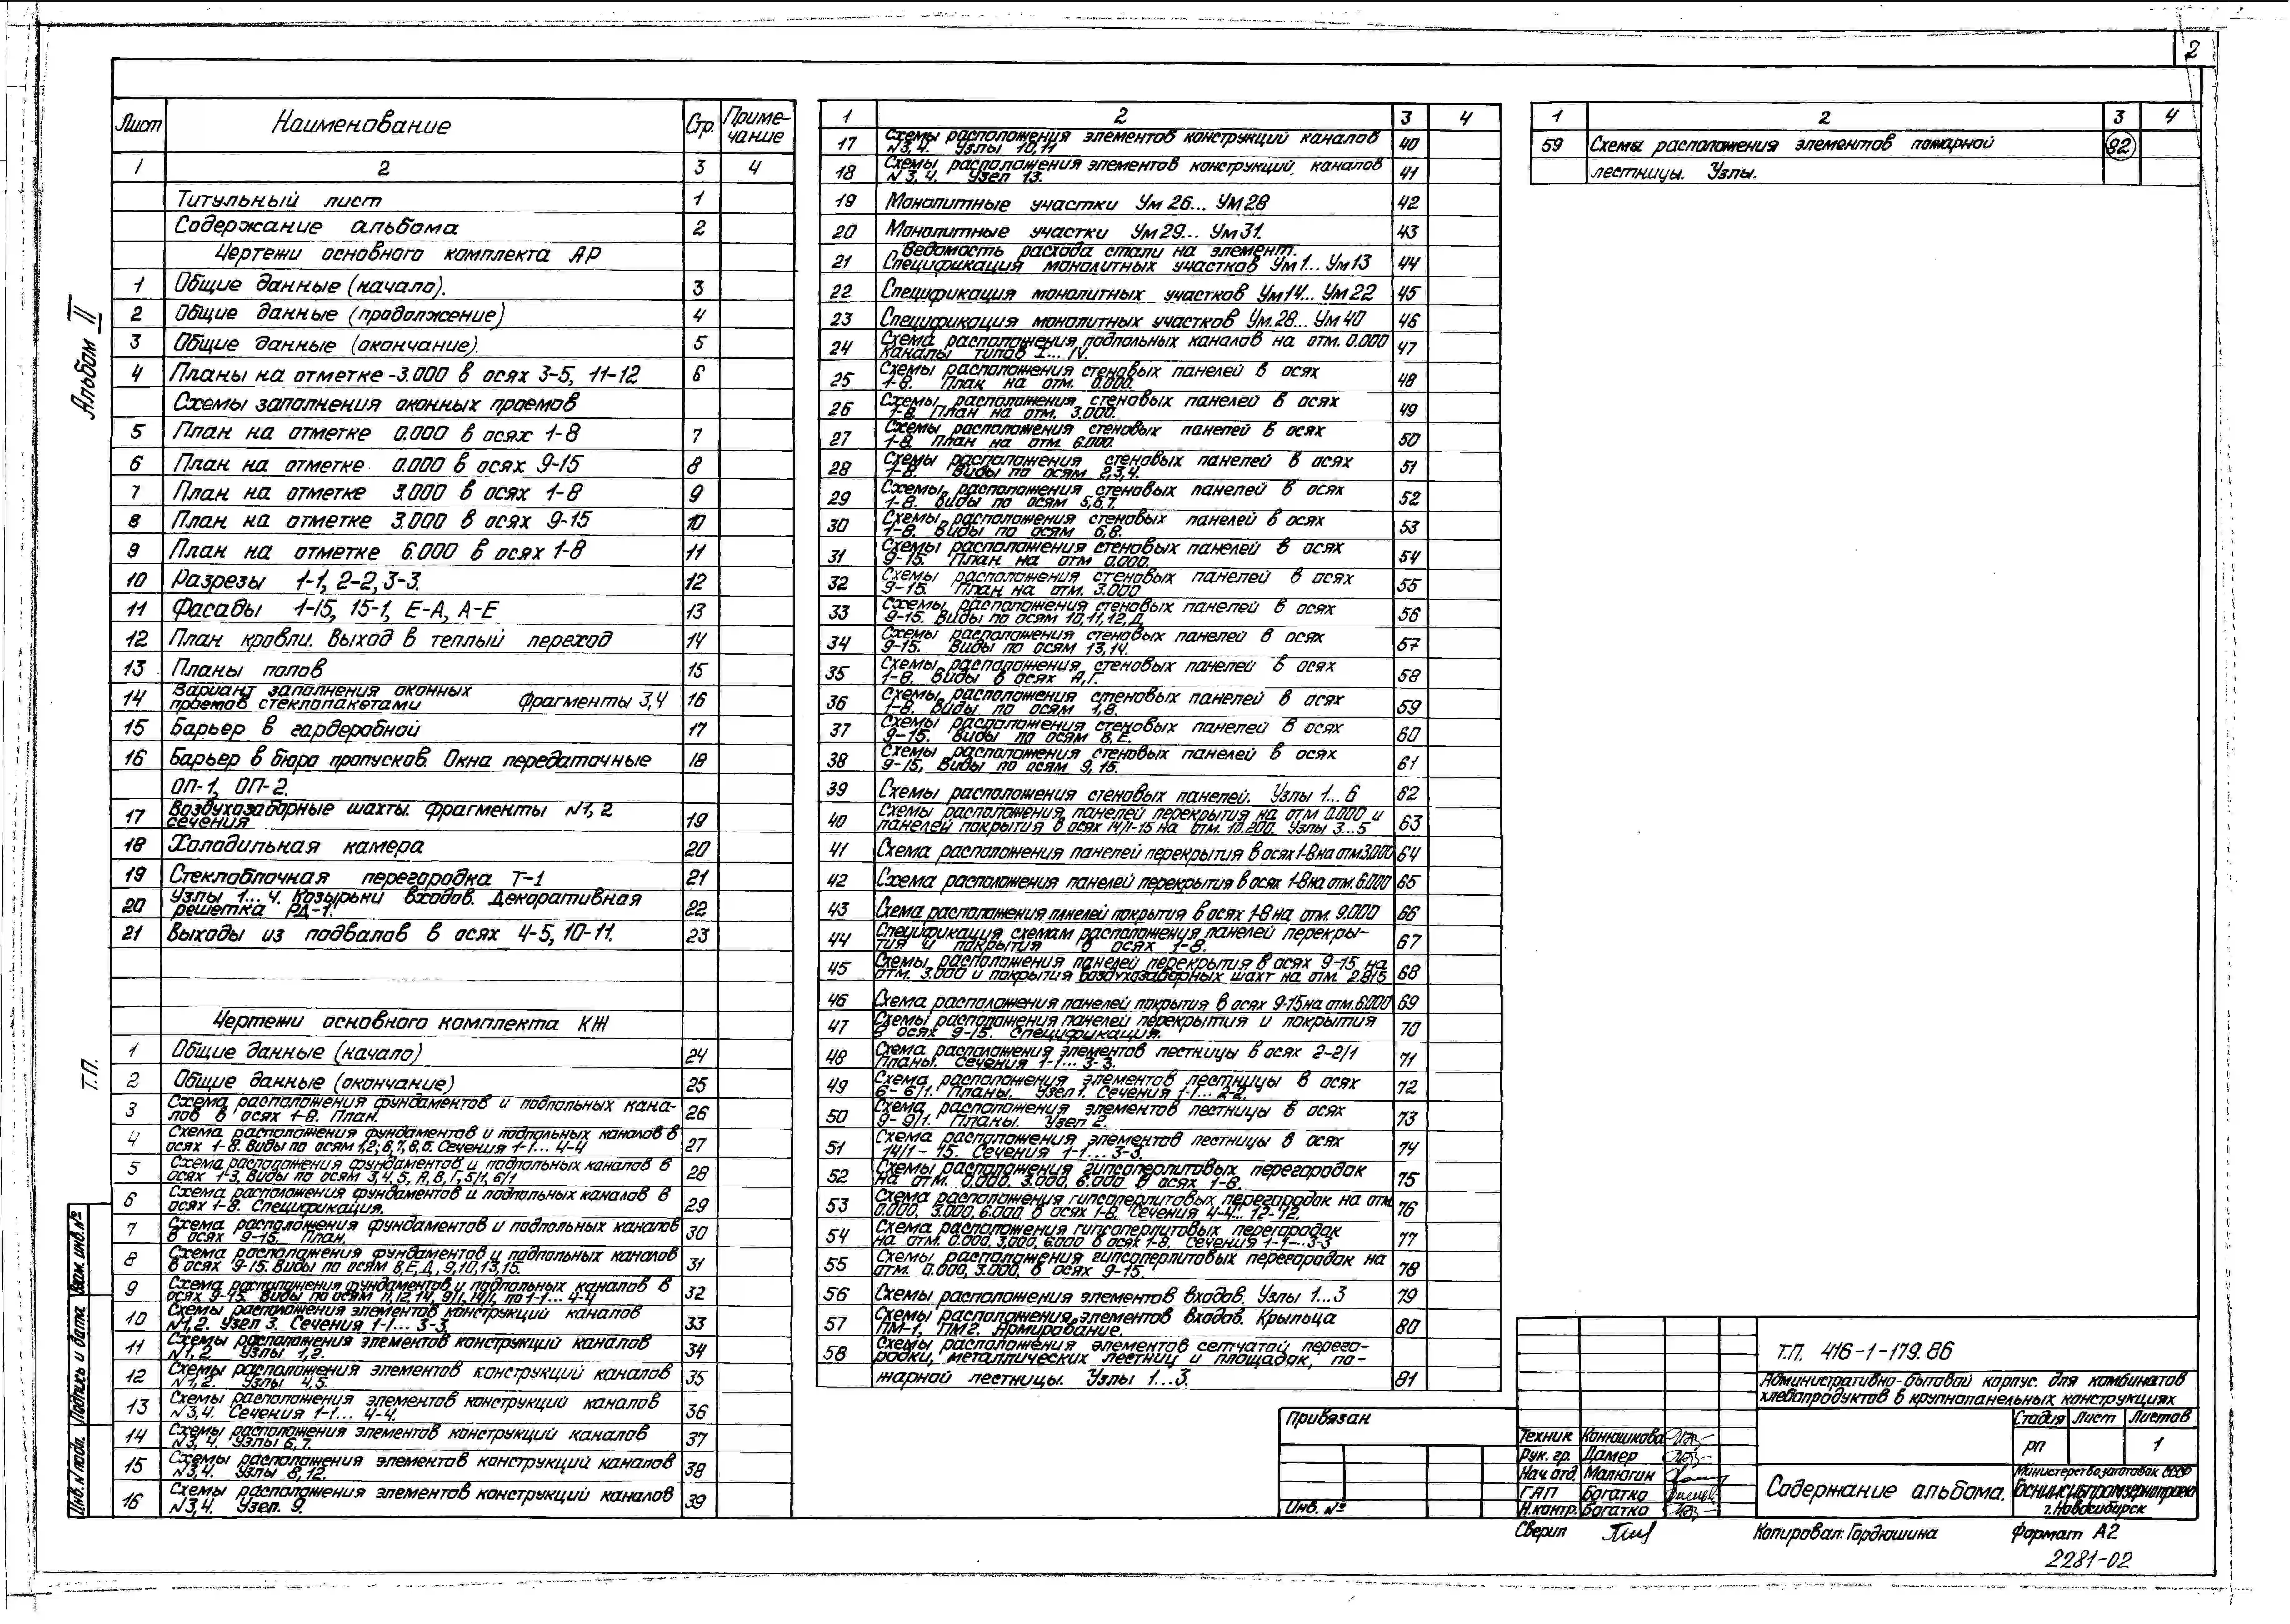 2
Альбом II
Т.П.
Лист Наименование Стр. Приме-
чание
1 2 3 4
Титульный лист 1
Содержание альбома 2
Чертежи основного комплекта АР
1 Общие данные (начало). 3
2 Общие данные (продолжение) 4
3 Общие данные (окончание). 5
4 Планы на отметке -3.000 в осях 3-5, 11-12 6
Схемы заполнения оконных проемов
5 План на отметке 0.000 в осях 1-8 7
6 План на отметке 0.000 в осях 9-15 8
7 План на отметке 3.000 в осях 1-8 9
8 План на отметке 3.000 в осях 9-15 10
9 План на отметке 6.000 в осях 1-8 11
10 Разрезы 1-1, 2-2, 3-3. 12
11 Фасады 1-15, 15-1, Е-А, А-Е 13
12 План кровли. Выход в теплый переход 14
13 Планы полов 15
14 Вариант заполнения оконных
проемов стеклопакетами Фрагменты 3,4 16
15 Барьер в гардеробной 17
16 Барьер в бюро пропусков. Окна передаточные 18
ОП-1, ОП-2.
17 Воздухозаборные шахты. Фрагменты N1, 2
сечения 19
18 Холодильная камера 20
19 Стеклоблочная перегородка Т-1 21
20 Узлы 1...4. Козырьки входов. Декоративная
решетка РД-1. 22
21 Выходы из подвалов в осях 4-5, 10-11. 23
Чертежи основного комплекта КЖ
1 Общие данные (начало) 24
2 Общие данные (окончание) 25
3 Схема расположения фундаментов и подпольных кана-
лов в осях 1-8. План. 26
4 Схема расположения фундаментов и подпольных каналов в
осях 1-8. Виды по осям 1,2, 6, 7, 8, Б. Сечения 1-1... 4-4 27
5 Схема расположения фундаментов и подпольных каналов в
осях 1-3. Виды по осям 3,4,5, А, В, Г, 5/1, 6/1 28
6 Схема расположения фундаментов и подпольных каналов в
осях 1-8. Спецификация. 29
7 Схема расположения фундаментов и подпольных каналов
в осях 9-15. План. 30
8 Схема расположения фундаментов и подпольных каналов
в осях 9-15. Виды по осям В,Е,Д, 9,10,13,15. 31
9 Схема расположения фундаментов и подпольных каналов в
осях 9-15. Виды по осям 11,12,14, 9/1, 14/1, по 1-1... 4-4 32
10 Схемы расположения элементов конструкций каналов
N1,2. Узел 3. Сечения 1-1... 3-3. 33
11 Схемы расположения элементов конструкций каналов
N1,2 Узлы 1,2. 34
12 Схемы расположения элементов конструкций каналов
N1,2. Узлы 4,5. 35
13 Схемы расположения элементов конструкций каналов
N3,4. Сечения 1-1... 4-4. 36
14 Схемы расположения элементов конструкций каналов
N3, 4. Узлы 6,7. 37
15 Схемы расположения элементов конструкций каналов
N3,4. Узлы 8,12. 38
16 Схемы расположения элементов конструкций каналов
N3,4. Узел. 9. 39
1 2 3 4
17 Схемы расположения элементов конструкций каналов
N3,4. Узлы 10,11 40
18 Схемы расположения элементов конструкций каналов
N3,4. Узел 13. 41
19 Монолитные участки Ум 26... УМ28 42
20 Монолитные участки Ум29... Ум31. 43
21 Ведомость расхода стали на элемент.
Спецификация монолитных участков Ум1... Ум13 44
22 Спецификация монолитных участков Ум14... Ум22 45
23 Спецификация монолитных участков Ум.28... Ум40 46
24 Схема расположения подпольных каналов на отм. 0.000
Каналы типов I... IV. 47
25 Схемы расположения стеновых панелей в осях
1-8. План на отм. 0.000. 48
26 Схемы расположения стеновых панелей в осях
1-8. План на отм. 3.000. 49
27 Схемы расположения стеновых панелей в осях
1-8. План на отм. 6.000. 50
28 Схемы расположения стеновых панелей в осях
1-8. Виды по осям 2,3,4. 51
29 Схемы расположения стеновых панелей в осях
1-8. Виды по осям 5,6,7. 52
30 Схемы расположения стеновых панелей в осях
1-8. Виды по осям 6,8. 53
31 Схемы расположения стеновых панелей в осях
9-15. План на отм 0.000. 54
32 Схемы расположения стеновых панелей в осях
9-15. План на отм. 3.000 55
33 Схемы расположения стеновых панелей в осях
9-15. Виды по осям 10,11,12,Д 56
34 Схемы расположения стеновых панелей в осях
9-15. Виды по осям 13,14. 57
35 Схемы расположения стеновых панелей в осях
1-8. Виды в осях А,Г. 58
36 Схемы расположения стеновых панелей в осях
1-8. Виды по осям 1,8. 59
37 Схемы расположения стеновых панелей в осях
9-15. Виды по осям В,Е. 60
38 Схемы расположения стеновых панелей в осях
9-15. Виды по осям 9, 15. 61
39 Схемы расположения стеновых панелей. Узлы 1... 6 62
40 Схемы расположения панелей перекрытия на отм 0.000 и
панелей покрытия в осях 14/1-15 на отм. 10.200. Узлы 3...5 63
41 Схема расположения панелей перекрытия в осях 1-8 на отм 3.000 64
42 Схема расположения панелей перекрытия в осях 1-8 на отм. 6.000 65
43 Схема расположения панелей покрытия в осях 1-8 на отм. 9.000 66
44 Спецификация схемам расположения панелей перекры-
тия и покрытия в осях 1-8. 67
45 Схемы расположения панелей перекрытия в осях 9-15 на
отм. 3.000 и покрытия воздухозаборных шахт на отм. 2.815 68
46 Схема расположения панелей покрытия в осях 9-15 на отм.6.000 69
47 Схемы расположения панелей перекрытия и покрытия
в осях 9-15. Спецификация. 70
48 Схема расположения элементов лестницы в осях 2-2/1
Планы. Сечения 1-1... 3-3. 71
49 Схема расположения элементов лестницы в осях
6-6/1. Планы. Узел 1. Сечения 1-1... 2-2. 72
50 Схема расположения элементов лестницы в осях
9-9/1. Планы. Узел 2. 73
51 Схема расположения элементов лестницы в осях
14/1 - 15. Сечения 1-1... 3-3. 74
52 Схемы расположения гипсоперлитовых перегородок
на отм. 0.000, 3.000, 6.000 в осях 1-8. 75
53 Схема расположения гипсоперлитовых перегородок на отм
0.000, 3.000, 6.000 в осях 1-8. Сечения 4-4... 12-12. 76
54 Схема расположения гипсоперлитовых перегородок
на отм. 0.000, 3.000, 6.000 в осях 1-8. Сечения 1-1...3-3 77
55 Схемы расположения гипсоперлитовых перегородок на
отм. 0.000, 3.000, в осях 9-15. 78
56 Схемы расположения элементов входов. Узлы 1...3 79
57 Схемы расположения элементов входов. Крыльца
ПМ-1, ПМ2. Армирование. 80
58 Схемы расположения элементов сетчатой перего-
родки, металлических лестниц и площадок, по-
жарной лестницы. Узлы 1...3. 81
1 2 3 4
59 Схема расположения элементов пожарной 82
лестницы. Узлы.
Взам. инв.№
Подпись и дата
Инв.N подл.
Привязан
Инв. №
Т.П. 416-1-179.86
Административно-бытовой корпус для комбинатов
хлебопродуктов в крупнопанельных конструкциях
Стадия Лист Листов
РП 1
Техник Конюшкова
Рук. гр. Дамер
Нач отд. Малюгин
ГАП Богатко
Н.контр. Богатко
Содержание альбома.
Министерство заготовок СССР
г.Новосибирск
Сверил
Копировал: Гордюшина
Формат А2
2281-02